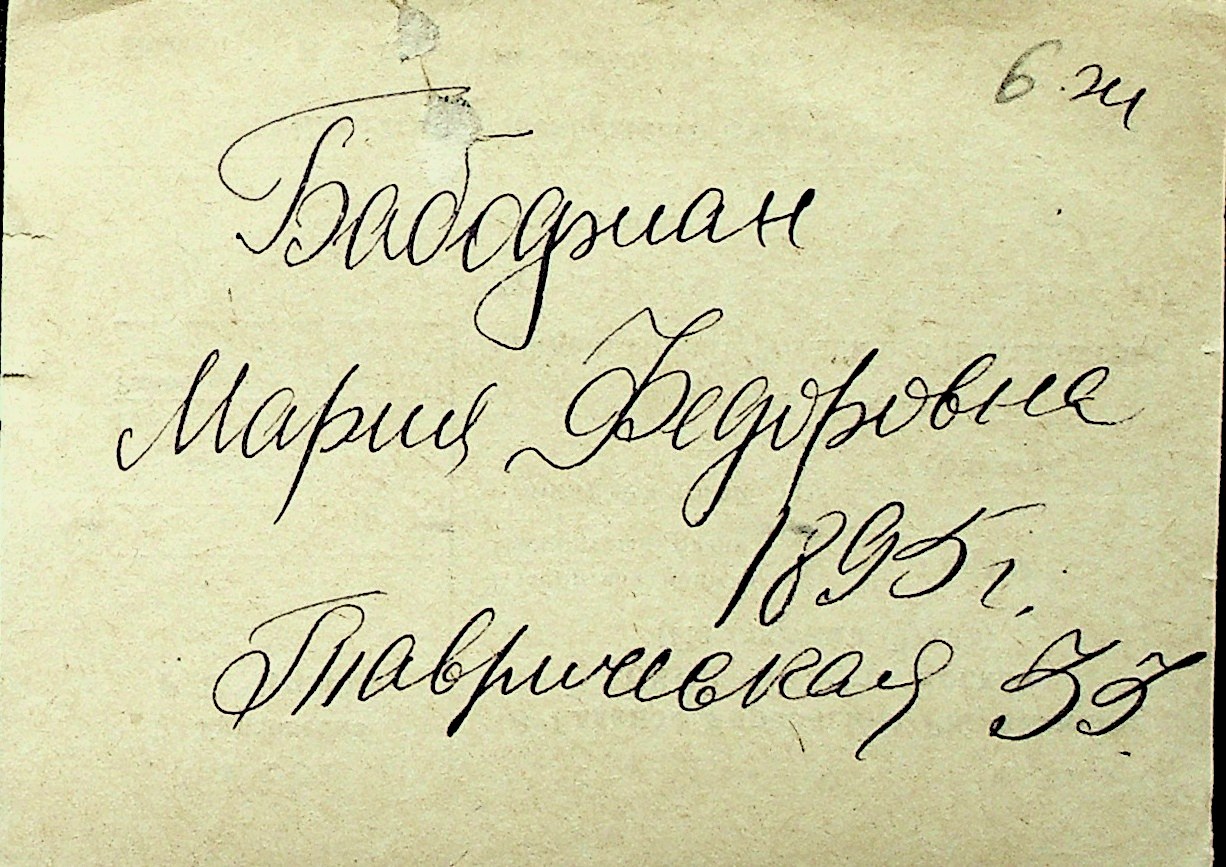 6.ж
Бабоджиан
Мария Федоровна
1895 г.
Таврическая 33